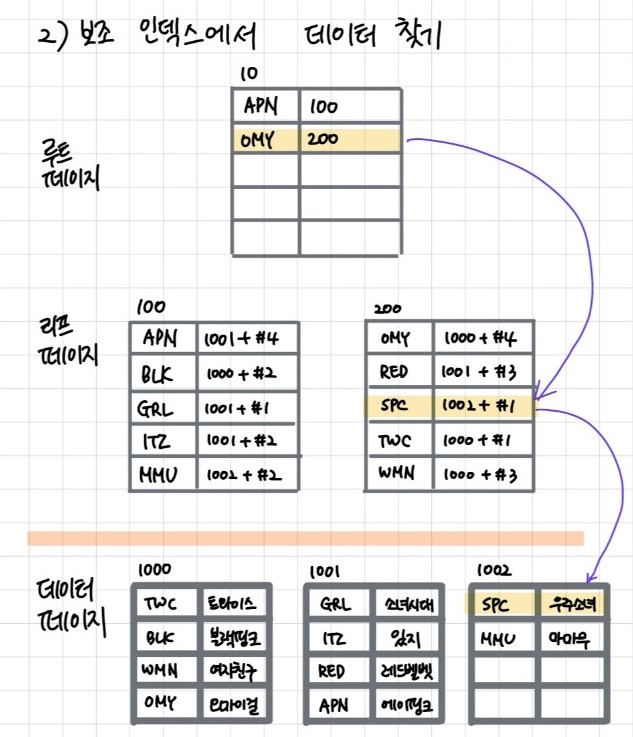 2) 보조 인덱스에서 데이터 찾기
10
APN 100
OMY 200
루트
페이지
리프
페이지
100
APN 1001 + #4
BLK 1000 + #2
GRL 1001 + #1
ITZ 1001 + #2
MMU 1002 + #2
200
OMY 1000 + #4
RED 1001 + #3
SPC 1002 + #1
TWC 1000 + #1
WMN 1000 + #3
데이터
페이지
1000
TWC 트와이스
BLK 블랙핑크
WMN 여자친구
OMY 오마이걸
1001
GRL 소녀시대
ITZ 있지
RED 레드벨벳
APN 에이핑크
1002
SPC 우주소녀
MMU 마마무